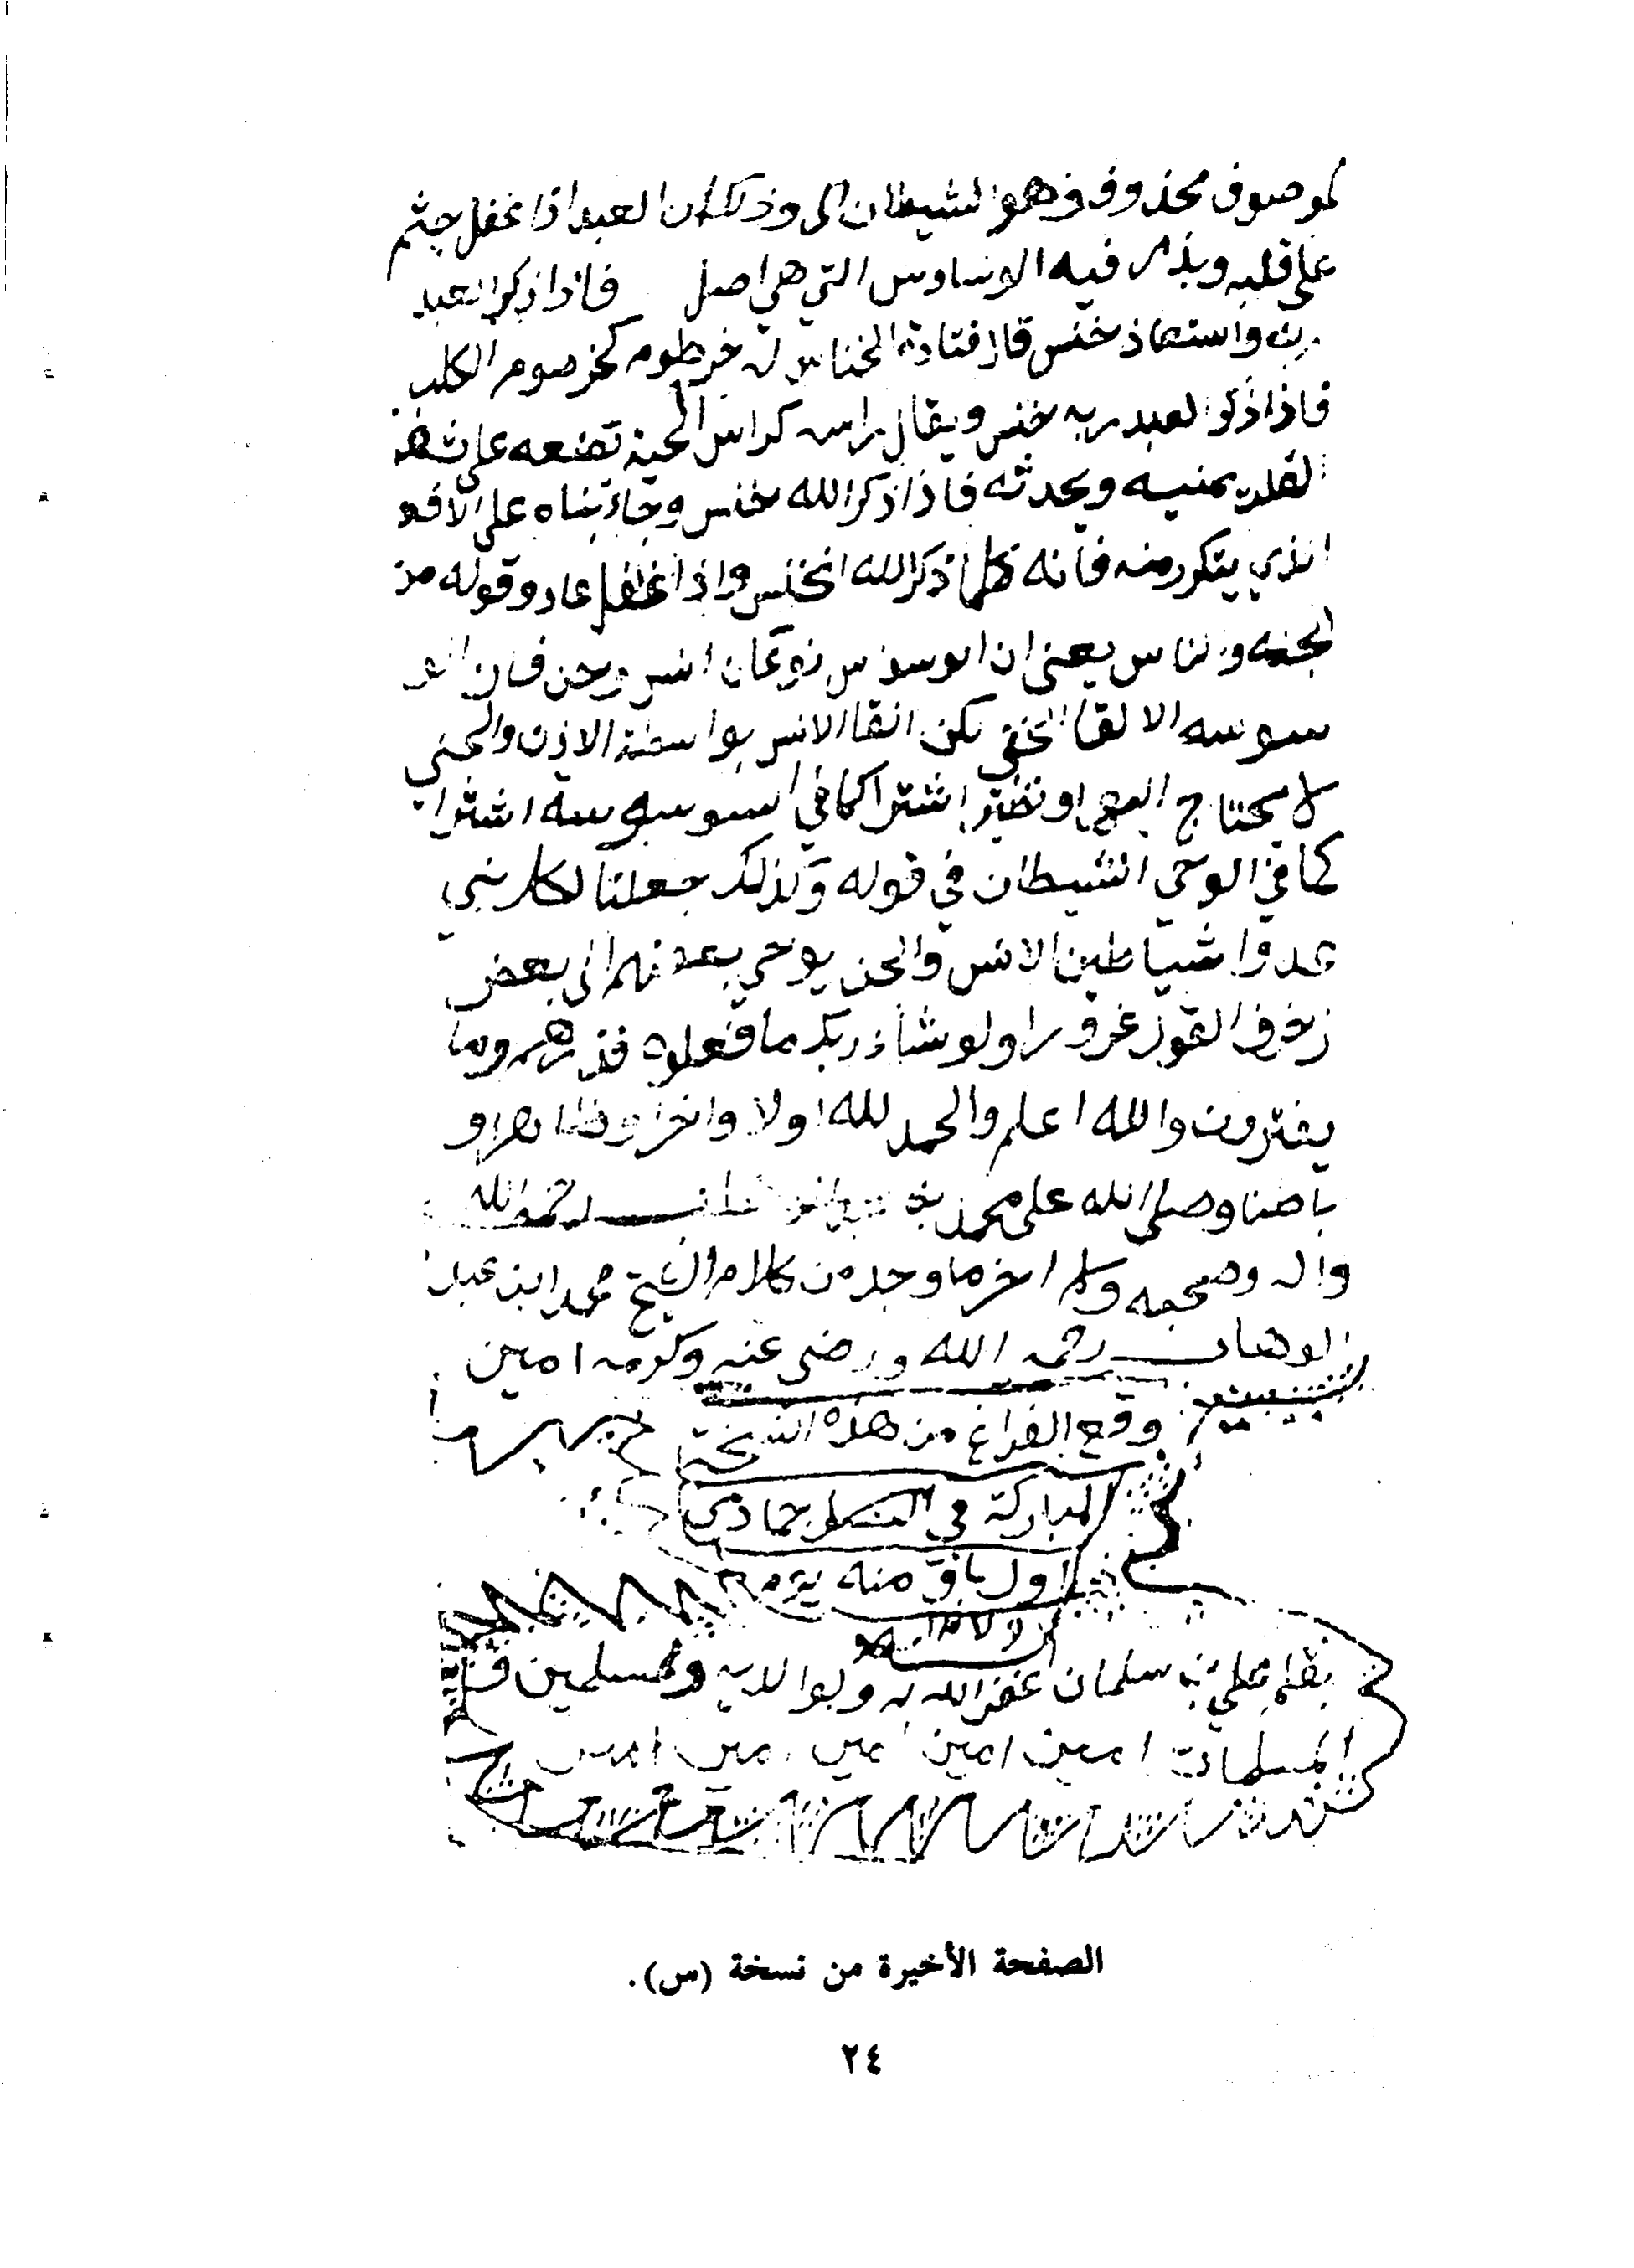 لموصوف محذوف وهو الشيطان الى وذلك ان العبد اذا غفل جثم
على قلبه وبذر فيه الوساوس التي هي اصل فاذا ذكر العبد
ربه واستعاذ خنس قال قتادة الخناس له خرطوم كخرصوم الكلب
فاذا ذكر العبد ربه خنس ويقال راسه كراس الحية تضعه على
القلب يمنيه ويحدثه فاذا ذكر الله خنس وجاء بناه على
الذي يتكرر منه فانه كلما ذكر الله انخنس واذا غفل عاد وقوله من
الجنه والناس يعني ان الوسواس نوعان انس وجن فان
سوسه الالقا الخفي لكن القا الانس بواسطة الاذن والجني
لا يحتاج اليها ونظير اشتراكما في اشترا
كما في الوحي الشيطان في قوله وكذلك جعلنا لكل نبي
عدوا شياطين الانس والجن يوحي بعضهم الى بعض
زخرف القول غرورا ولو شاء ربك ما فعلوه فذرهم وما
يفترون والله اعلم والحمد لله اولا واخرا وظاهرا و
باطنا وصلى الله على محمد رحمه الله
واله وصحبه وسلم اخر ما وجد من كلام الشيخ محمد ابن عبد
الوهاب رحمه الله ورضي عنه وكرمه امين
وقع الفراغ من هذه النسخة
المباركة في جمادى
اول باق منه يوم
بقلم علي بن سلمان غفر الله له ولوالديه والمسلمين
المسلمات امين امين امين امين امين
الصفحة الأخيرة من نسخة (س).
٢٤